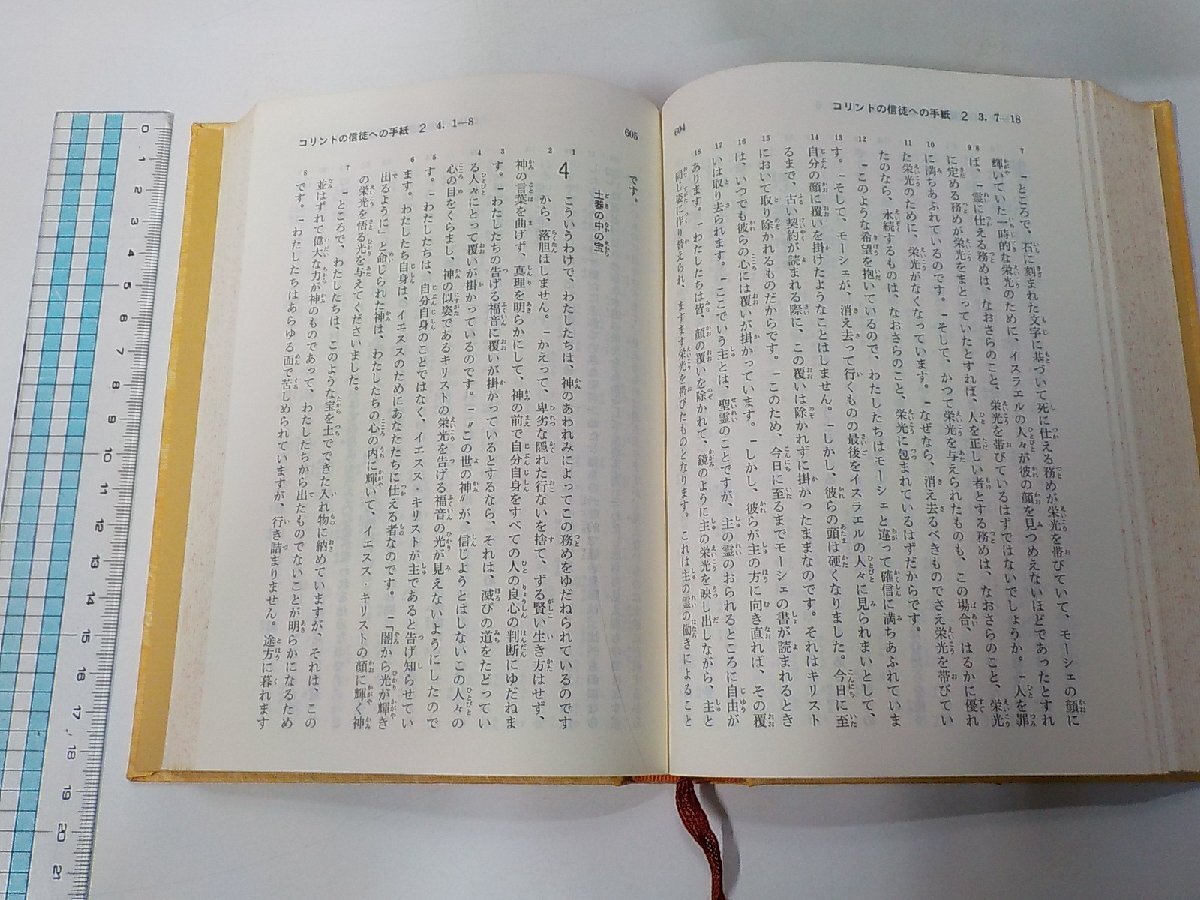 コリントの信徒への手紙 2 3.7―18
7 「ところで、石に刻まれた文字に基づいて死に仕える務めが栄光を帯びていて、モーシェの顔に
輝いていた一時的な栄光のために、イスラエルの人々が彼の顔を見つめえないほどであったとすれ
8 ば、霊に仕える務めは、なおさらのこと、栄光を帯びているはずではないでしょうか。
9 人を罪
に定める務めが栄光をまとっていたとすれば、人を正しい者とする務めは、なおさらのこと、栄光
10 に満ちあふれているのです。そして、かつて栄光を与えられたものも、この場合、はるかに優れ
11 た栄光のために、栄光がなくなっています。なぜなら、消え去るべきものでさえ栄光を帯びてい
たのなら、永続するものは、なおさらのこと、栄光に包まれているはずだからです。
12 このような希望を抱いているので、わたしたちはモーシェと違って確信に満ちあふれていま
13 す。そして、モーシェが、消え去って行くものの最後をイスラエルの人々に見られまいとして、
自分の顔に覆いを掛けたようなことはしません。
14 しかし、彼らの頭は硬くなりました。今日に至
るまで、古い契約が読まれる際に、この覆いは除かれずに掛かったままなのです。それはキリスト
15 において取り除かれるものだからです。このため、今日に至るまでモーシェの書が読まれるとき
16 は、いつでも彼らの心には覆いが掛かっています。しかし、彼らが主の方に向き直れば、その覆
17 いは取り去られます。ここでいう主とは、聖霊のことですが、主の霊のおられるところに自由が
18 あります。わたしたちは皆、顔の覆いを除かれて、鏡のように主の栄光を映し出しながら、主と
同じ姿に作り替えられ、ますます栄光を帯びたものとなります。これは主の霊の働きによること
604
コリントの信徒への手紙 2 4.1―8
605
です。
土器の中の宝
4
1 こういうわけで、わたしたちは、神のあわれみによってこの務めをゆだねられているのです
2 から、落胆はしません。かえって、卑劣な隠れた行ないを捨て、ずる賢い生き方はせず、
神の言葉を曲げず、真理を明らかにして、神の前で自分自身をすべての人の良心の判断にゆだねま
3 す。わたしたちの告げる福音に覆いが掛かっているとするなら、それは、滅びの道をたどってい
4 る人々にとって覆いが掛かっているのです。“この世の神”が、信じようとはしないこの人々の
心の目をくらまし、神の似姿であるキリストの栄光を告げる福音の光が見えないようにしたので
5 す。わたしたちは、自分自身のことではなく、イエスス・キリストが主であると告げ知らせてい
6 ます。わたしたち自身は、イエススのためにあなたたちに仕える者なのです。「闇から光が輝き
出るように」と命じられた神は、わたしたちの心の内に輝いて、イエスス・キリストの顔に輝く神
の栄光を悟る光を与えてくださいました。
7 ところで、わたしたちは、このような宝を土でできた入れ物に納めていますが、それは、この
並はずれて偉大な力が神のものであって、わたしたちから出たものでないことが明らかになるため
8 です。わたしたちはあらゆる面で苦しめられていますが、行き詰まりません。途方に暮れます
0 1 2 3 4 5 6 7 8 9 10 11 12 13 14 15 16 17 18 19 20 21